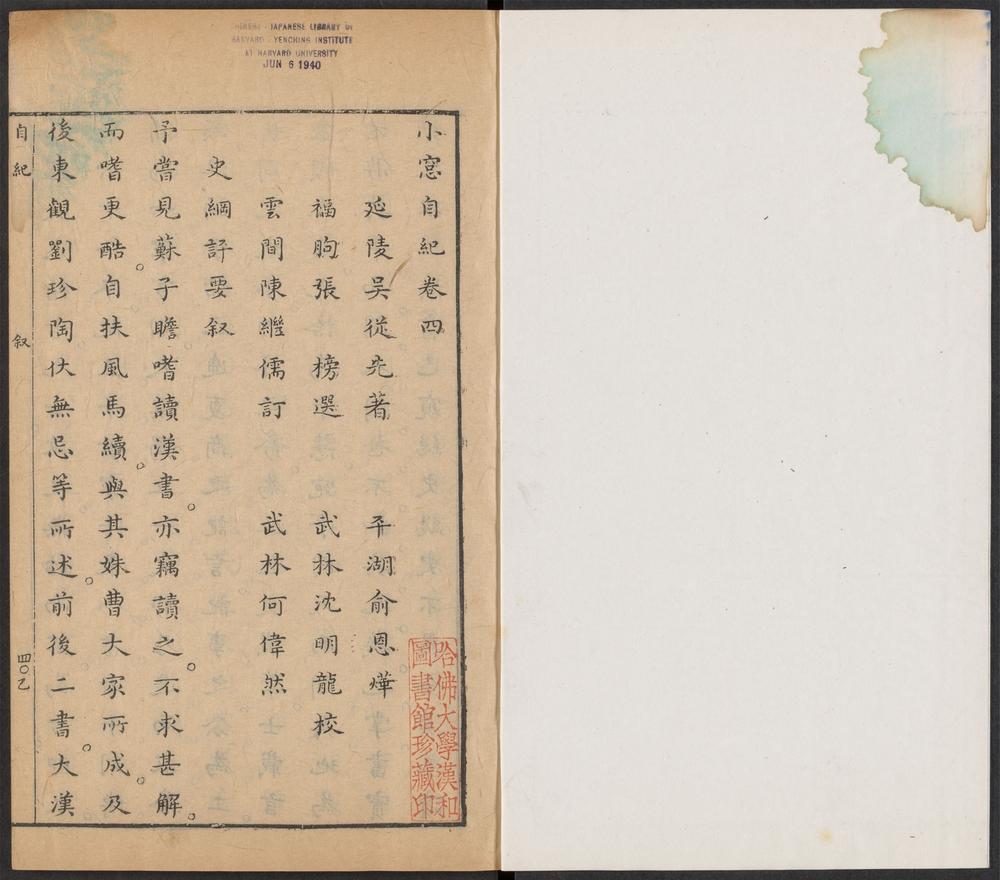 CHINESE - JAPANESE LIBRARY OF
HARVARD - YENCHING INSTITUTE
AT HARVARD UNIVERSITY
JUN 6 1940
小窓自紀卷四
延陵吴從先著 平湖俞恩燁
福朐張 榜選 武林沈明龍校
雲間陳繼儒訂 武林何偉然
史綱評要叙
予嘗見蘇子瞻嗜讀漢書亦竊讀之。不求甚解。
而嗜更酷。自扶風馬續。與其姝曹大家所成。及
後東觀劉珍陶伏無忌等所述。前後二書。大漢
自紀 叙 四〇乙
哈佛大學漢和
圖書館珍藏印